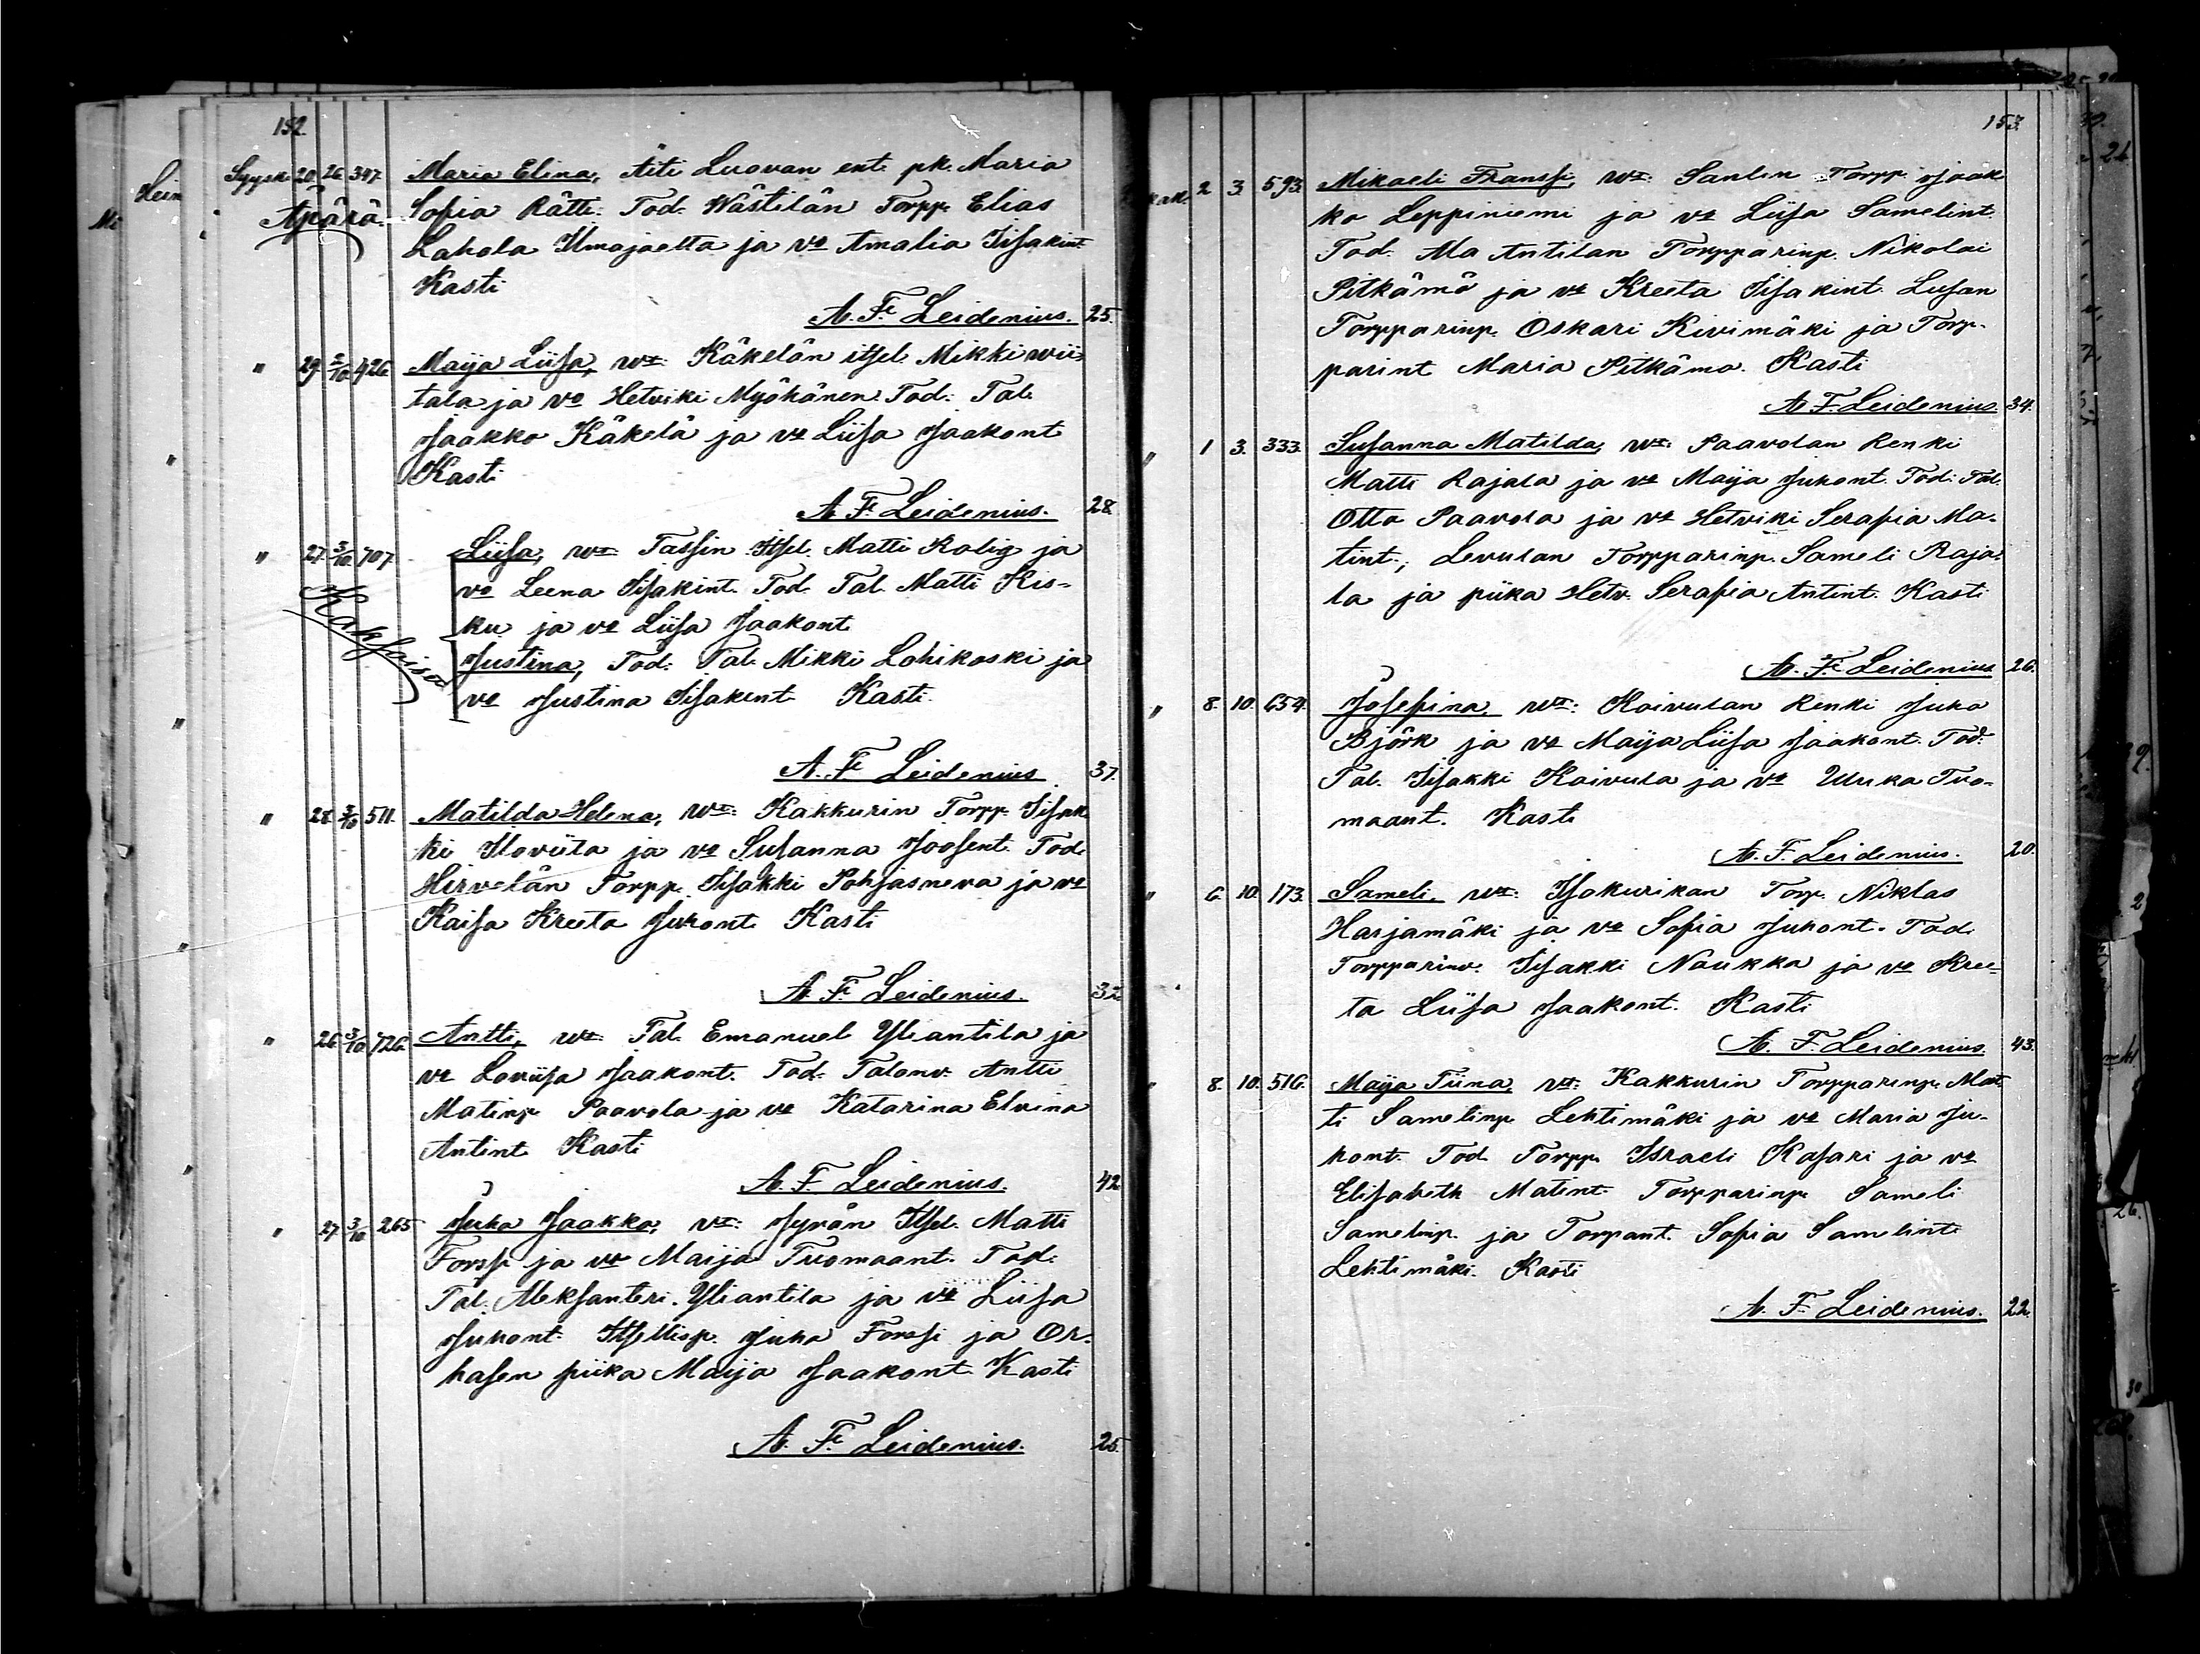 152.
Syysk. 20. 26. 347. Maria Elina, Äiti Luovan ent. pk. Maria
Äpärä. Sofia Rätti. Tod. Wästilän Torpp. Elias
Lahola Ilmajoelta ja vo Amalia Iisakint.
Kasti
A. F. Leidenius. 25.
" 29. 2/10 426. Maija Liisa, wt: Käkelän itsel. Mikki wii-
tala ja vo Hetviki Myöhänen. Tod: Tal.
Jaakko Käkelä ja vo Liisa Jaakont.
Kasti
A. F. Leidenius. 28.
" 27. 3/10 707. Liisa, wt: Tassin Itsel. Matti Rolig ja
vo Leena Iisakint. Tod. Tal. Matti Kis-
ku ja vo Liisa Jaakont.
Kaksoiset Justina, Tod: Tal. Mikki Lohikoski ja
vo Justina Iisakint. Kasti.
A. F. Leidenius 37.
" 28. 3/10 511. Matilda Helena, wt: Kakkurin Torpp. Iisak-
ki Iloviita ja vo Susanna Joosent. Tod.
Hirvelän Torpp. Iisakki Pohjasneva ja vo
Kaisa Kreeta Juhont. Kasti
A. F. Leidenius. 32.
" 26. 3/10 726. Antti, wt: Tal. Emanuel Yliantila ja
vo Loviisa Jaakont. Tod: Talonv. Antti
Matinp. Paavola ja vo Katarina Elvina
Antint. Kasti
A. F. Leidenius. 42.
" 27. 3/10 265. Juha Jaakko, vt: Jyrän Itsel. Matti
Forssi ja vo Maija Tuomaant. Tod.
Tal. Aleksanteri Yliantila ja vo Liisa
Juhont. Itsellisp. Juha Forssi ja Or-
hasen piika Maija Jaakont. Kasti
A. F. Leidenius. 25.
153.
2. 3. 593. Mikaeli Franssi, wt: Sanlin Torpp. Jaak
ko Leppiniemi ja vo Liisa Samelint.
Tod. Ala Antilan Torpparinp. Nikolai
Pitkämö ja vo Kreeta Iisakint. Lusan
Torpparinp. Oskari Kivimäki ja Torp-
parint. Maria Pitkämö. Kasti
A. F. Leidenius. 34.
" 1. 3. 333. Susanna Matilda, wt: Paavolan Renki
Matti Rajala ja vo Maija Juhont. Tod: Tal.
Otto Paavola ja vo Hetviki Serafia Ma-
tint., Levulan Torpparinp. Sameli Raja-
la ja piika Hetv. Serafia Antint. Kasti
A. F. Leidenius 26.
" 8. 10. 654. Josefina, wt: Koivulan Renki Juho
Björk ja vo Maija Liisa Jaakont. Tod:
Tal. Iisakki Koivula ja vo Ulrika Tuo-
maant. Kasti
A. F. Leidenius. 20.
" 6. 10. 173. Sameli, wt: Isokurikan Torp. Niklas
Harjamäki ja vo Sofia Juhont. Tod.
Torpparinv. Iisakki Naukka ja vo Kree-
ta Liisa Jaakont. Kasti
A. F. Leidenius. 43.
" 8. 10. 516. Maija Tiina, vt: Kakkurin Torpparinp. Mat
ti Samelinp. Lehtimäki ja vo Maria Ju-
hont. Tod. Torpp. Israeli Kasari ja vo
Elisabeth Matint. Torpparinp. Sameli
Samelinp. ja Torpant. Sofia Samelint.
Lehtimäki. Kasti
A. F. Leidenius. 22.